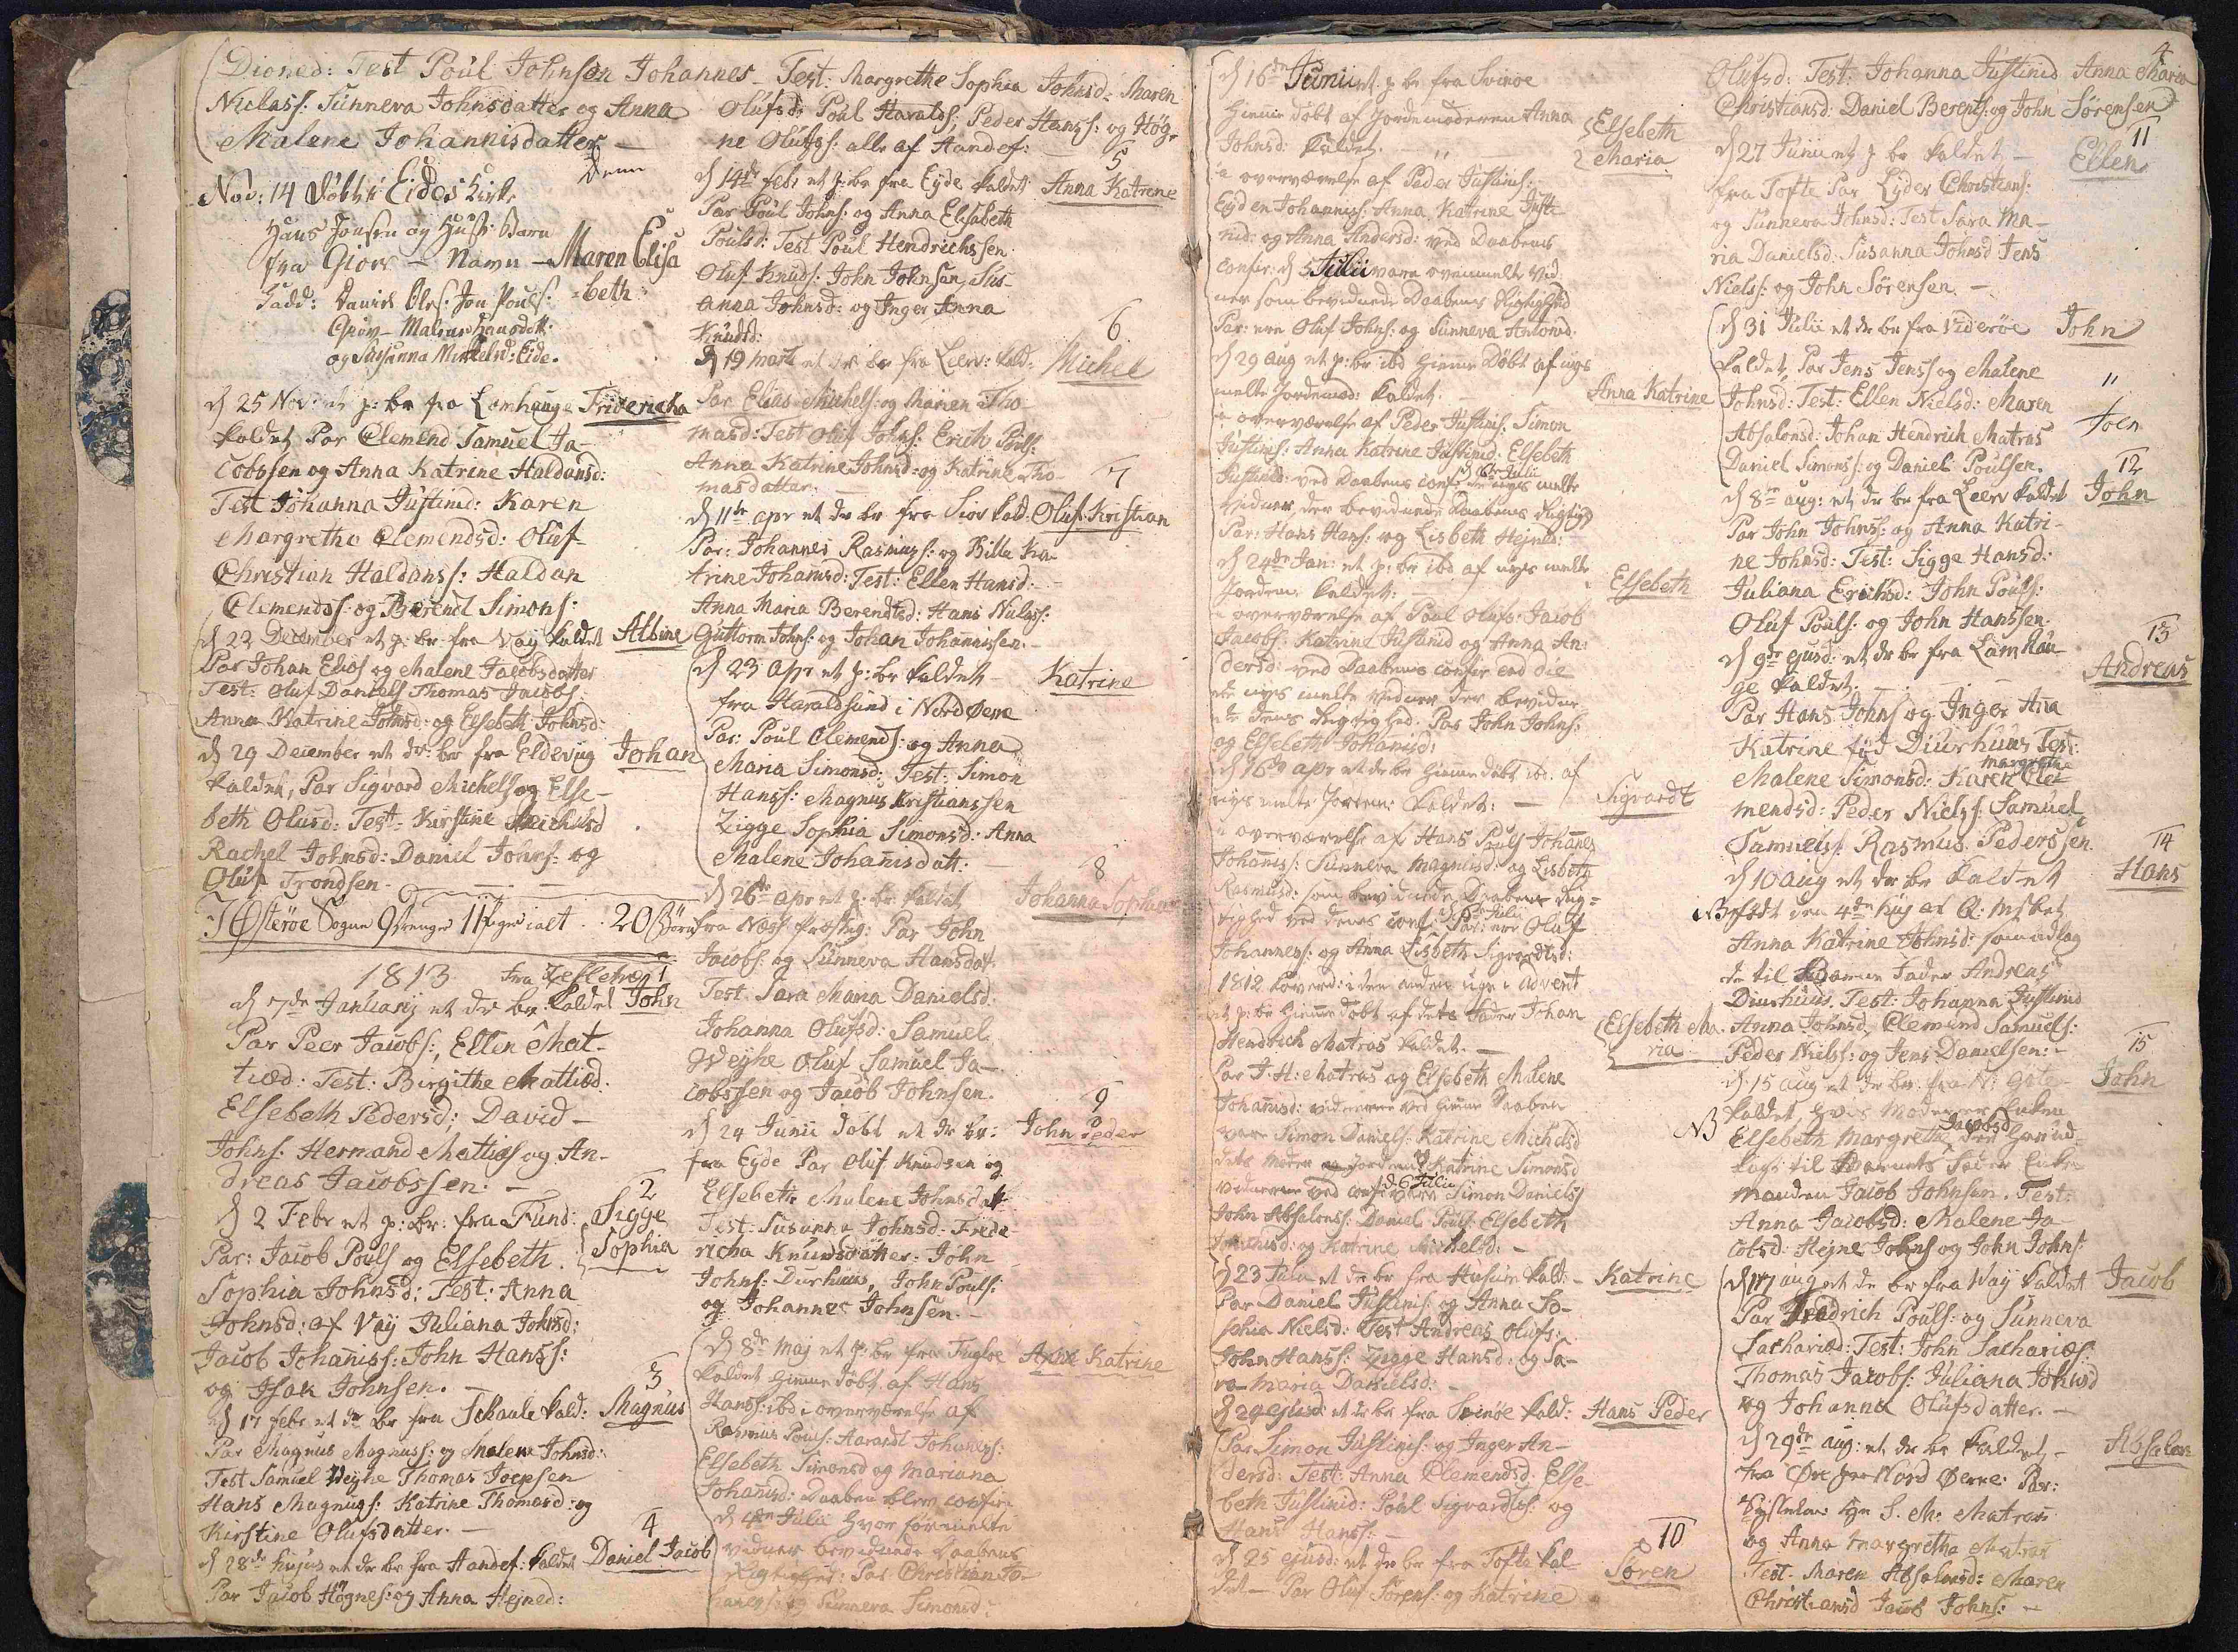 Dioned: Test Poul Johnsen Johannes
Niclass: Sunneva Johnsdatter og Anna
Malene Johannisdatter
Nov: 14 døbt i Eides Kirke
Hans Jonsen og Hust: Barn
fra Giov - Navn - Maren Elisa
beth
Fadd: Daniel Oles: Jon Pouls:
Giov - Malene Hansdatt:
og Susanna Mikkelsd: Eide.
d 25 Nov: et p: br fra Lamhauge Fridericha
kaldet Par Clemend Samuel Ja-
cobsen og Anna Katrine Haldansd:
Test Johanna Justinid: Karen
Margrethe Clemendsd: Oluf
Christian Haldanss: Haldan
Clemendss: og Berend Simons:
d 22 December et p: br fra Vaÿ kaldet Albine
Par Johan Elias og Malene Jacobsdatter
Test: Oluf Daniels Thomas Jacobs
Anna Katrine Johnsd: og Elsebeth Johnsd:
d 29 December et dr: br fra Eldevig Johan
kaldet, Par Sigvard Michels og Else-
beth Olusd: Test: Kirstine Michelsd
Rachel Johnsd: Daniel Johns: og
Oluf Trondsen.
I Østerøe Sogne 9 Drenge 11 Piger ialt 20 Børn
1813
1
d 7de Januarij et dr br kaldet John
Par Peer Jacobs:, Ellen Mat-
tiæd: Test: Birgithe Mattiæd.
Elsebeth Pedersd: David
Johns: Hermand Mattias og An-
dreas Jacobssen.
2
d 2 Febr et p: br: fra Fund: Sigge
Par: Jacob Pouls og Elsebeth Sophia
Sophia Johnsd: Test: Anna
Johnsd: af Vaÿ Juliana Johnsd:
Jacob Johaniss: John Hanss:
og Isak Johnsen.
3
d 17 febr et dr br fra Skaale kald: Magnus
Par Magnus Magnuss: og Malene Johnsd:
Test Samuel Weyhe Thomas Joensen
Hans Magnuss: Katrine Thomasd: og
Kirstine Olufsdatter.
4
d 28de hujus et dr br fra Handef: kaldet Daniel Jacob
Par Jacob Høgnes: og Anna Hejned:
Test: Margrethe Sophia Johnsd: Maren
Olufsd: Poul Haralds: Peder Hanss: og Høg-
ne Olufss: alle af Handef:
5
d 14de febr et p: br fra Eyde kaldet Anna Katrine
Par Poul Johns: og Anna Elsabeth
Poulsd: Test Poul Hendrichssen
Oluf Knuds: John Johnsen, Sus-
anna Johnsd: og Inger Anna
Knudsd:
6
d 19 marts et dr br fra Leerv: kald: Michel
Par Elias Michels: og Maren Tho-
masd: Test Oluf Johns: Erich Pouls:
Anna Katrine Johnsd: og Katrine Tho-
masdatter.
7
d 11te apr et dr br fra Siov kald: Oluf Kristian
Par: Johannes Rasmuss: og Billa Ka-
trine Johannisd: Test: Ellen Hansd:
Anna Maria Berendtsd: Hans Nielss:
Guttorm Johns: og Johan Johannissen.
d 23 apr et p: br kaldet Katrine
fra Haraldsund i Nord Øerne
Par: Poul Clemends: og Anna
Maria Simonsd: Test: Simon
Hanss: Magnus Kristianssen
Zigge Sophia Simonsd: Anna
Malene Johannisdatt:
8
d 26de apr et p: br kaldet Johanna Sophia
fra Næss Præstieg: Par John
Jacobs: og Sunneva Hansdat:
Test. Sara Maria Danielsd:
Johanna Olufsd: Samuel
Weyhe Oluf Samuel Ja-
cobssen og Jacob Johnsen.
9
d 24 Junii døbt et dr br: John Peder
fra Eyde Par Oluf Knudsen og
Elsebeth Malene Johnsdatt
Test: Susanna Johnsd: Frede-
richa Knudsdatter. John
Johns: Durhuus, John Pouls:
og Johannes Johnsen.
d 8de maj et p: br fra Fugløe Anne Katrine
kaldet hjemme døbt af Hans
Hanss: ibd i overværelse af
Rasmus Pouls: Harardt Johaness:
Elsebeth Simonsd og Mariana
Johannisd: Daaben blev confir:
d 4de Julii hvor formelte
vidner bevidnede Daabens
Rigtighed: Par Christian Jo-
haness: og Sunneva Simonsd:
d 16de Junii et p: br fra Svinøe
hjemmedøbt af Jordemoderen Anna Elsebeth
Johnsd: kaldet. Maria
i overværelse af Peder Justinis:
Eyden Johannis: Anna Katrine Justi-
nid: og Anna Andersd: ved Daabens
confir: d 5 Julii vare ovenmelte vid-
ner som bevidnede Daabens Rigtighed
Par: ere Oluf Johns: og Sunneva Antonid.
d 29 aug et p: br ibd hjemme døbt af nys
melte Jordemod: kaldet: Anna Katrine
i overværelse af Peder Justinis: Simon
Justinis: Anna Katrine Justinid: Elsebeth
Justinid: ved Daabens conf: d 6te Julii de nys melte
Vidner, der bevidnede Daabens Rigtigh
Par: Hans Hans: og Lisbeth Hejned:
d 24de Jan: et p: br ibd af nys melte
Jordem: kaldet: Elsebeth
i overværelse af Poul Olufs: Jacob
Jacobs: Katrine Justinid og Anna An-
dersd: ved Daabens confir:
nys melte vidner der bevidne-
de dens Rigtighed. Par John Johns:
og Elsebeth Johannisd:
d 16de apr et dr br hjemmedøbt ibd: af
nys melte Jordem: kaldet: Sigvardt
i overværelse af Hans Pouls Johanes
Johannis: Sunneva Magnusd: og Lisbeth
Rasmusd: som bevidnede Daabens Rig-
tighed ved dens conf: Julii Par: ere Oluf
Johannes: og Anna Lisbeth Sigvardtsd:
1812 i den anden uge i advent
et p: br hjemmedøbt af dets Fader Johan Elsebeth Ma-
Hendrich Matras kaldet. ria
Par J. H: Matras og Elsebeth Malene
Johannisd: vidnerne ved hjemme Daaben
vare Simon Daniels: Katrine Michelsd
dets moder og Katrine Simonsd
vidnerne ved conf: d 6 Julii vare Simon Daniels
John Absalonss: Daniel Pouls Elsebeth
Johannisd: og Katrine Michelsd:
d 23 Julii et dr br fra Husum kald: Katrine
Par Daniel Justinis: og Anna So-
phia Nielsd: Test Andreas Olufs:
John Hanss: Zigge Hansd: og Sa-
ra Maria Danielsd:
d 29 ejusd: et dr br fra Svinøe kald: Hans Peder
Par Simon Justinis: og Inger An-
dersd: Test: Anna Clemendsd: Else-
beth Justinid: Poul Sigvardtss: og
Hans Hanss:
10
d 25 ejusd: et dr br fra Tofte kal- Søren
det — Par Oluf Sørens: og Katrine
4
Olufsd: Test: Johanna Justinid Anna Maria
Christiansd: Daniel Berents: og John Sørensen
11
d 27 Junii et p br kaldet Ellen
fra Tofte Par Lyder Christians:
og Sunneva Johnsd: Test Sara Ma-
ria Danielsd: Susanna Johnsd Jens
Niels: og John Sørensen.
d 31 Julii et dr br fra Viderøe John
kaldet, Par Jens Jenss og Malene
Johnsd: Test: Ellen Nielsd: Maren
Absalonsd: Johan Hendrich Matras Joen
Daniel Simons: og Daniel Poulsen.
12
d 8de aug: et dr br fra Leerv kaldet John
Par John Johnss: og Anna Katri-
ne Johnsd: Test: Sigge Hansd:
Juliana Eriksd: John Pouls:
Oluf Pouls: og John Hanssen.
13
d 9de ejusd: et dr br fra Lamhau-
ge kaldet Andreas
Par Hans Johns og Inger Ana
Katrine fød Diurhuus Test:
Malene Simonsd: Karen Margrethe Cle-
mendsd: Peder Nielss: Samuel
Samuels: Rasmus Pederssen
14
d 10 aug et dr br kaldet Hans
NB født den 4de huj af Q: Msket
Anna Katrine Johnsd: som udlag
de til Barne Fader Andreas
Diurhuus. Test: Johanna Justinid
Anna Johnsd, Clemend Samuels:
Peder Nielss: og Jens Danielsen:
15
d. 15 aug et dr br. fra N: Gøte John
kaldet, hvis Moder er Enken
NB Elsebeth Margrethe Jacobsd: har ud-
lagt til Barnets Fader Enke-
manden Jacob Johnsen. Test:
Anna Jacobsd: Malene Ja-
cobsd: Hejne Johns og John Johns:
d 17 aug et dr br fra Vaÿ kaldet Jacob
Par Fredrich Pouls: og Sunneva
Sachariæd: Test: John Sacharias:
Thomas Jacobs: Juliana Johnsd
og Johanna Olufsdatter.
d 29de aug: et dr br kaldet Absalon
fra Øre Nord Øerne: Par:
Sysselm: Hr S. M: Matras
og Anna Margretha Matras
Test: Maren Absalonsd: Maren
Christiansd Jacob Johns: